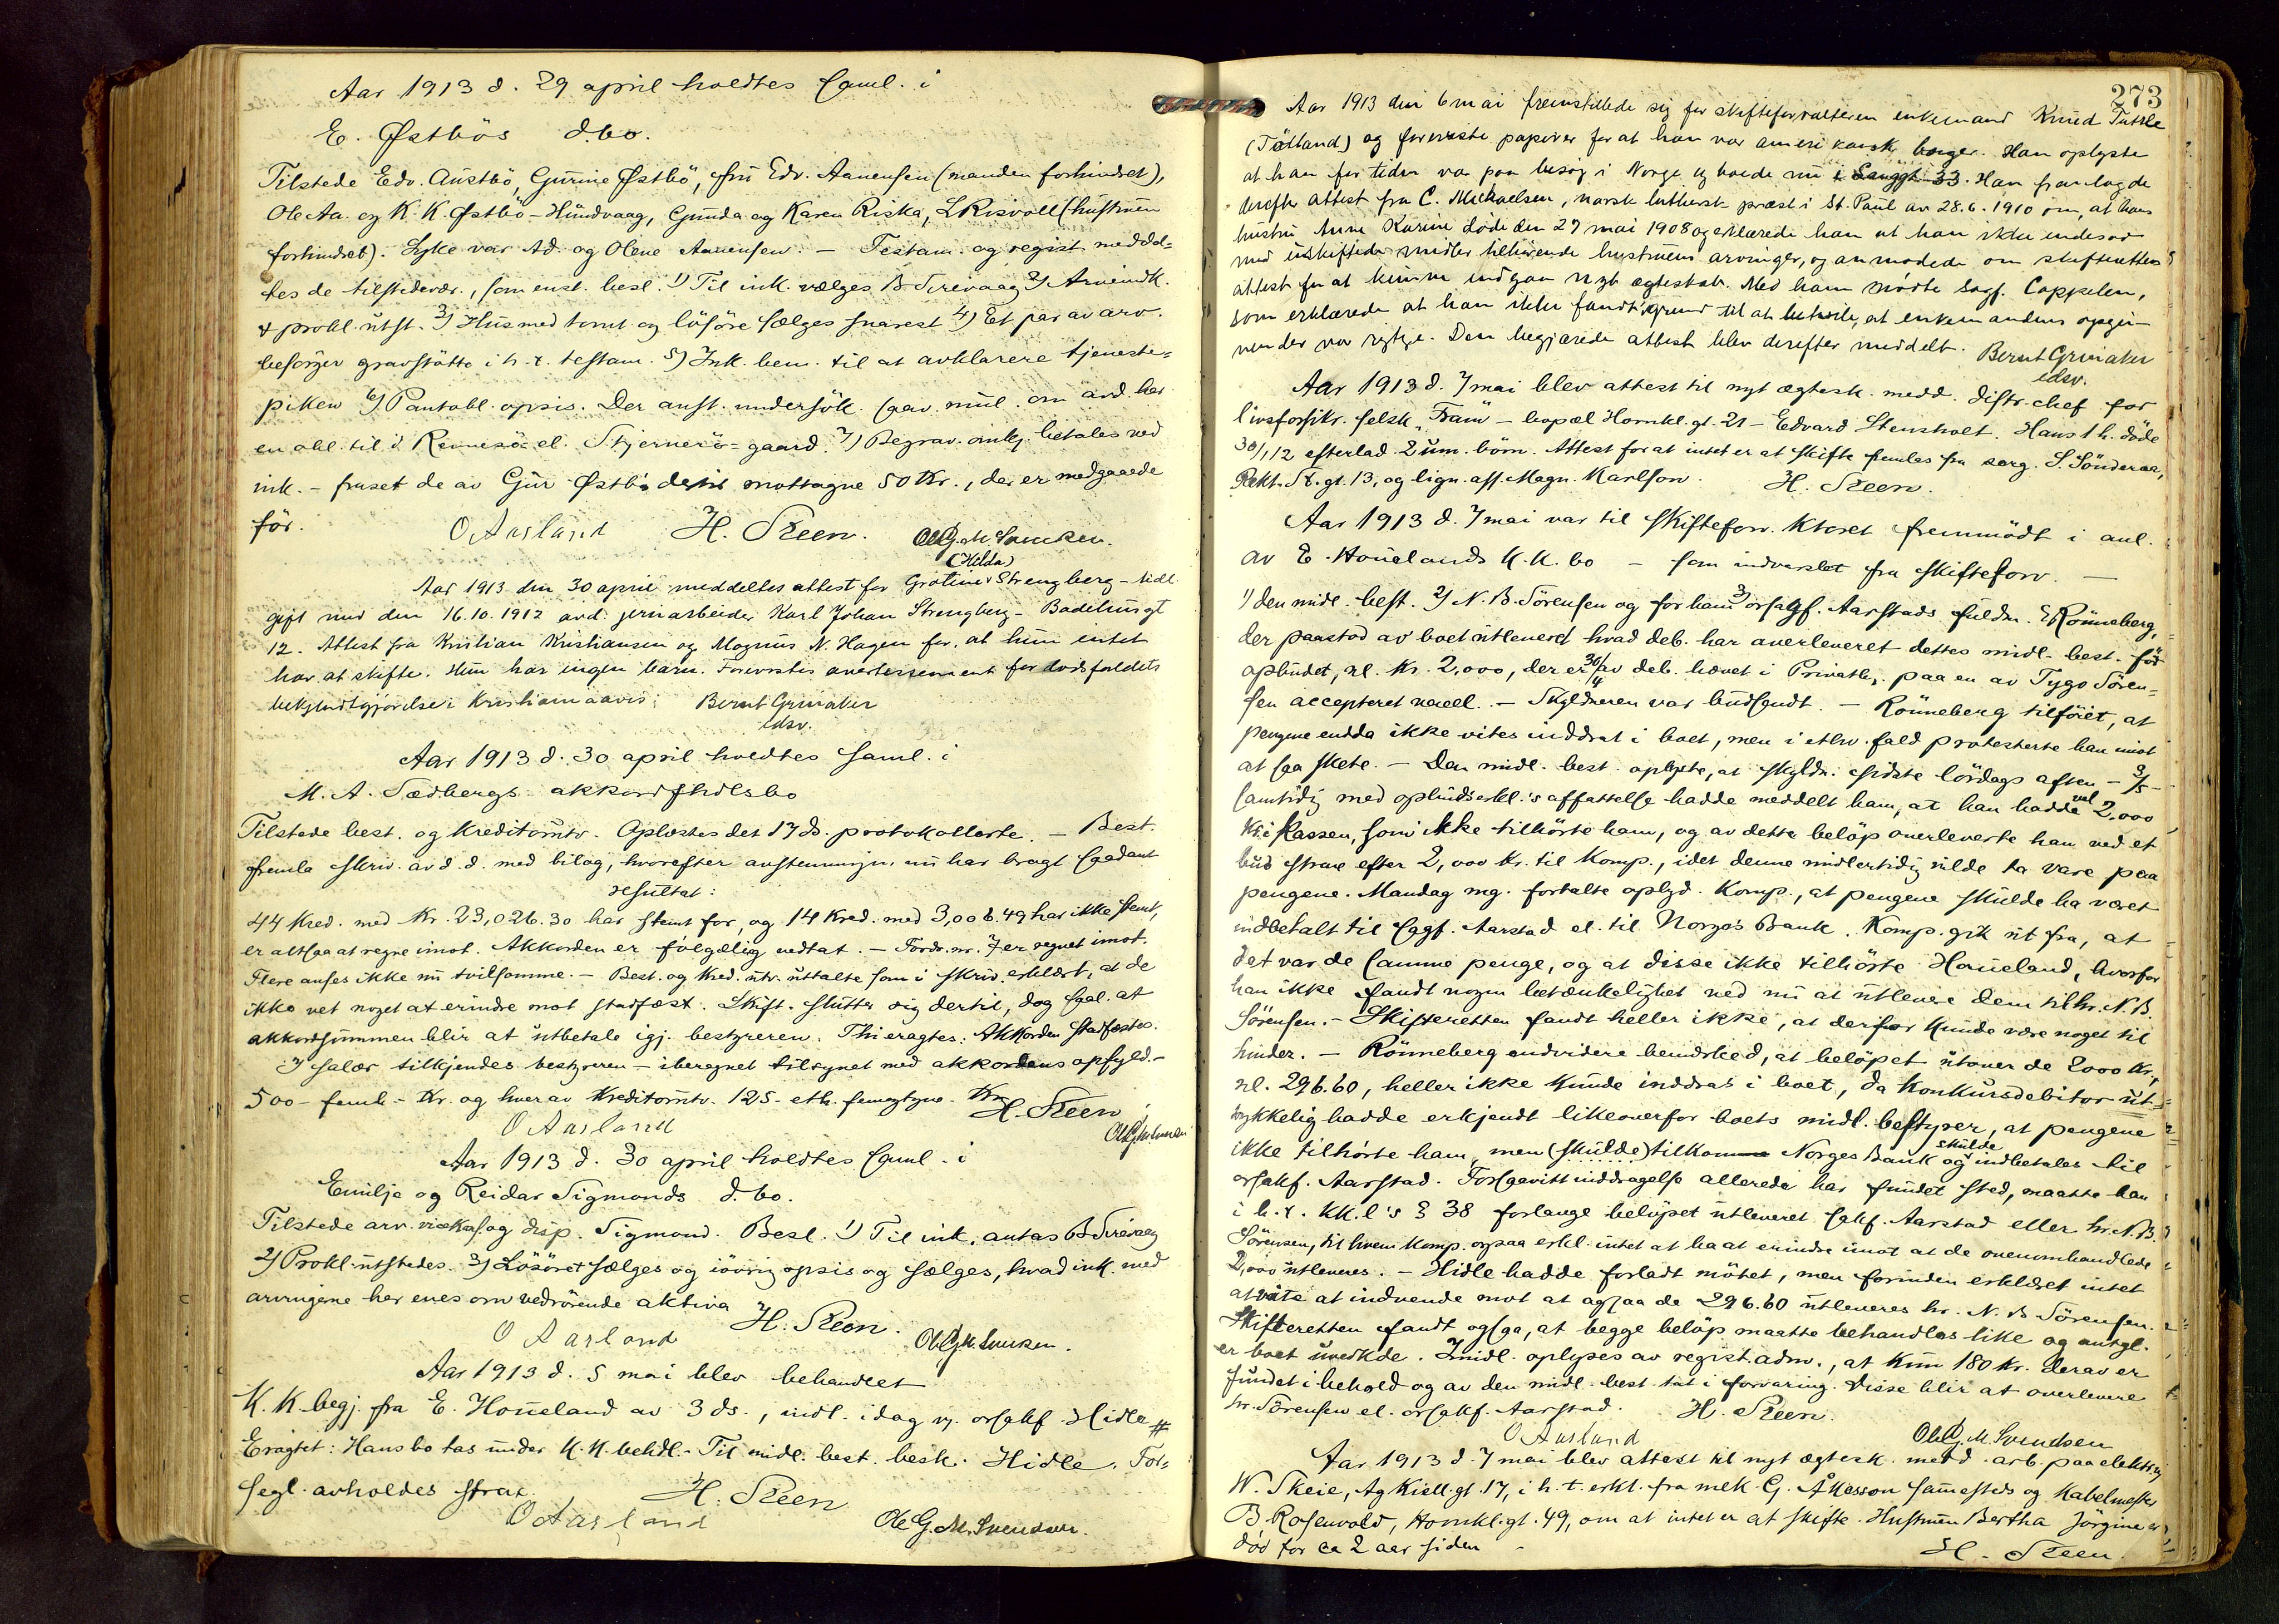 Aar 1913 d. 29 april holdtes saml. i
E. Østbös d.bo.
Tilstede Edv. Austbö, Gurine Østbö, fru Edv. Aanensen (manden forhindret),
Ole Aa. og K. K. Østbö - Hundvaag, Gunda og Karen Riska, L Risvoll (hustruen
forhindret). Syke var Ad. og Olene Aanensen - Testam. og regist. meddel-
tes de tilstedevær., som enst. besl. 1) Til ink. vælges B. Sirevaag 2) Arveindk.
& prokl. utst. 3) Hus med tomt og lösöre sælges snarest 4) Et par av arv.
besörger gravstötte i h. t. testam. 5) Ink. bem. til at avklarere tjeneste-
piken 6) Pantobl. opsis. Der anst. undersök. saav. mul. om avd. har
en obl. til i Rennesö el. Stjernerö-gaard. 7) Begrav. omk. betales ved
ink. - fruset de av Gur. Østbö mottagne 50 Kr., der er medgaaede
för.
O Aasland H. Steen. Ole G. M. Svendsen.
(Hilda)
Aar 1913 den 30 april meddeltes attest for Gratine Strengberg - tidl.
gift med den 16.10.1912 avd. jernarbeider Karl Johan Strengberg - Badehusgt
12. Attest fra Kristian Kristiansen og Magnus N. Hagen for, at hun intet
har at skifte. Hun har ingen barn. Forevistes avertissement for dödsfaldets
bekjendtgjörelse i Kristianiaavis. Bernt Grinaker
edsv.
Aar 1913 d. 30 april holdtes saml. i
M. A. Sædbergs akkordfhdlsbo
Tilstede best. og kreditorutv. Oplæstes det 17 ds. protokollerte. - Best.
fremla skriv. av d. d. med bilag, hvorefter avstemningen nu har bragt saadant
resultat:
44 Kred. med Kr. 23,026.30 har stemt for, og 14 Kred. med 3,006.49 har ikke stemt,
er altsaa at regne imot. Akkorden er fölgelig vedtat. - Fordr. nr. 7 er regnet imot.
Flere anses ikke nu tvilsomme. - Best. og Kred. utv. uttalte som i skriv. erklært, at de
ikke vet noget at erindre mot stadfæst. Skift. slutter sig dertil, dog skal at
akkordsummen blir at utbetale igj. bestyreren. Thi eragtes: Akkorden stadfæstes.
I salær tilkjendes bestyreren - iberegnet tilsynet med akkordens opfyld. -
500 - femh. - Kr. og hver av Kreditorutv. 125 - eth. femogtyve - Kr.
H. Steen
O Aasland Ole G. M. Svendsen
Aar 1913 d. 30 april holdtes saml. i
Emilje og Reidar Sigmonds d.bo.
Tilstede arv. vicekons. og disp. Sigmond. Besl. 1) Til ink. antas B Sirevaag
2) Prokl. utstedes. 3) Lösöret sælges og iövrig opsis og sælges, hvad ink. med
arvingene her enes om vedrörende aktiva
H. Steen.
O Aasland Ole G. M. Svendsen.
Aar 1913 d. 5 mai blev behandlet
K. K. begj. fra E. Houeland av 3 ds., indl. idag v. orsakf. Hidle #
Eragtet: Hans bo tas under K. K. behdl. - Til midl. best. besk. Hidle. For-
segl. avholdes strax.
H. Steen
O Aasland Ole G. M. Svendsen.
273
Aar 1913 den 6 mai fremstillede sig for skifteforvalteren enkemand Knud Tuttle
(Tödland) og foreviste papirer for at han var amerikansk borger. Han oplyste
at han for tiden var paa besög i Norge og boede nu i Langgt. 33. Han fremlagde
derefter attest fra C. Michaelsen, norsk luthersk præst i St. Paul av 28.6.1910 om, at hans
hustru Anne Karine döde den 27 mai 1908 og erklærede han at han ikke indesad
med uskiftede midler tilhörende hustruens arvinger, og anmodede om skifterettens
attest for at kunne indgaa nyt egteskab. Med ham mödte Sagf. Cappelen,
som erklærede at han ikke fandt grund til at betvile, at enkemandens opgiv-
vender var rigtige. Den begjærede attest blev derefter meddelt. Bernt Grinaker
edsv.
Aar 1913 d. 7 mai blev attest til nyt ægtesk. medd. distr. chef for
livsforsikr. selsk. "Fram" - bopæl Hornkl. gt. 21 - Edvard Stensholt. Hans 1 h. döde
30/1 12 efterlad. 2 um. börn. Attest for at intet er at skifte fremles fra serg. S. Sönderaa,
Rekt. St. gt. 13, og lign. ass. Magn. Karlson. H. Steen.
Aar 1913 d. 7 mai var til skifteforv. Ktoret fremmödt i anl.
av E. Houelands K. K. bo - som indvarslet fra skifteforv. -
1) den midl. best. 2) N. B. Sörensen og for ham 3) orsagf. Aarstads fuldm. Rönneberg,
der paastod av boet utleveret hvad deb. har overleveret dettes midl. best. för
opbudet, nl. Kr. 2,000, der er 30/4 av deb. hævet i Privatb. paa en av Tygo Sören-
sen accepteret veksel. - Skyldneren var budsendt. - Rönneberg tilföiet, at
pengene endda ikke vites inddrat i boet, men i ethv. fald protesterte han imot
at saa skete. - Den midl. best. oplyste, at skyldn. sidste lördags aften - 3/5 -
samtidig med opbudserkl.'s affattelse hadde meddelt ham, at han hadde vel 2,000
Kr. i Kassen, som ikke tilhörte ham, og av dette belöp overleverte han ved et
bud strax efter 2,000 Kr. til Komp., idet denne midlertidig vilde ta vare paa
pengene. Mandag mg. fortalte oplyd. Komp., at pengene skulde ha været
indbetalt til sagf. Aarstad el. til Norges Bank. Komp. gik ut fra, at
det var de samme penge, og at disse ikke tilhörte Houeland, hvorfor
han ikke fandt nogen betænkelighet ved nu at utlevere dem til hr. N. B.
Sörensen. - Skifteretten fandt heller ikke, at derfor kunde være noget til
hinder. - Rönneberg endvidere bemerked, at belöpet utover de 2000 Kr.,
nl. 296.60, heller ikke kunde inddras i boet, da konkursdebitor ut-
trykkelig hadde erkjendt likeoverfor boets midl. bestyrer, at pengene
ikke tilhörte ham, men (skulde) tilkomme Norges Bank og skulde indbetales til
orsakf. Aarstad. Forsaavitt inddragelse allerede har fundet sted, maatte han
i h. t. KK.l's § 38 forlange belöpet utleveret sakf. Aarstad eller hr. N. B.
Sörensen, til hvem Komp. ogsaa erkl. intet at ha at erindre imot at de ovenomhandlede
2,000 utleveres. - Hidle hadde forladt mötet, men forinden erklæret intet
at vite at indvende mot at ogsaa de 296.60 utleveres hr. N. B. Sörensen.
Skifteretten fandt ogsaa, at begge belöp maatte behandles like og antgl.
er boet uvedkde. Imidl. oplyses av regist. adm., at kun 180 Kr. derav er
fundet i behold og av den midl. best. tat i forvaring. Disse blir at overlevere
hr. Sörensen el. orsakf. Aarstad. H. Steen.
O Aasland Ole G. M. Svendsen
Aar 1913 d. 7 mai blev attest til nyt ægtesk. medd. arb. paa elektr.
W. Skeie, Ag Kiell. gt. 17, i h. t. erkl. fra mek. G. Åkesson sammesteds og Kabelmester
B. Rosenvold, Hornkl. gt. 49, om at intet er at skifte. Hustruen Bertha Jörgine er
död for ca 2 aar siden -
H. Steen.